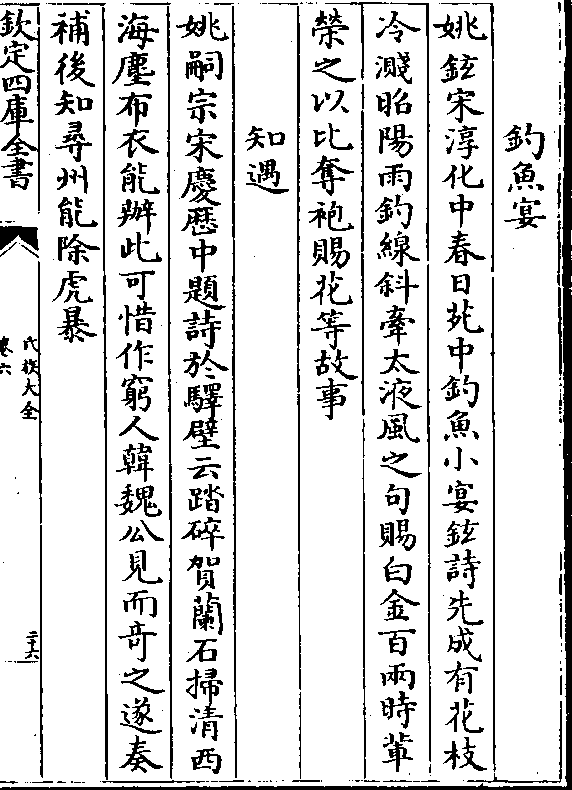 釣魚宴
姚鉉宋淳化中春日苑中釣魚小宴鉉詩先成有花枝
冷濺昭陽雨釣線斜牽太液風之句賜白金百兩時輩
榮之以比奪袍賜花等故事
知遇
姚嗣宗宋慶厯中題詩於驛壁云踏碎賀蘭石掃清西
海塵布衣能辦此可惜作窮人韓魏公見而奇之遂奏
補後知尋州能除虎暴
欽定四庫全書
氏族大全
卷六
二十六